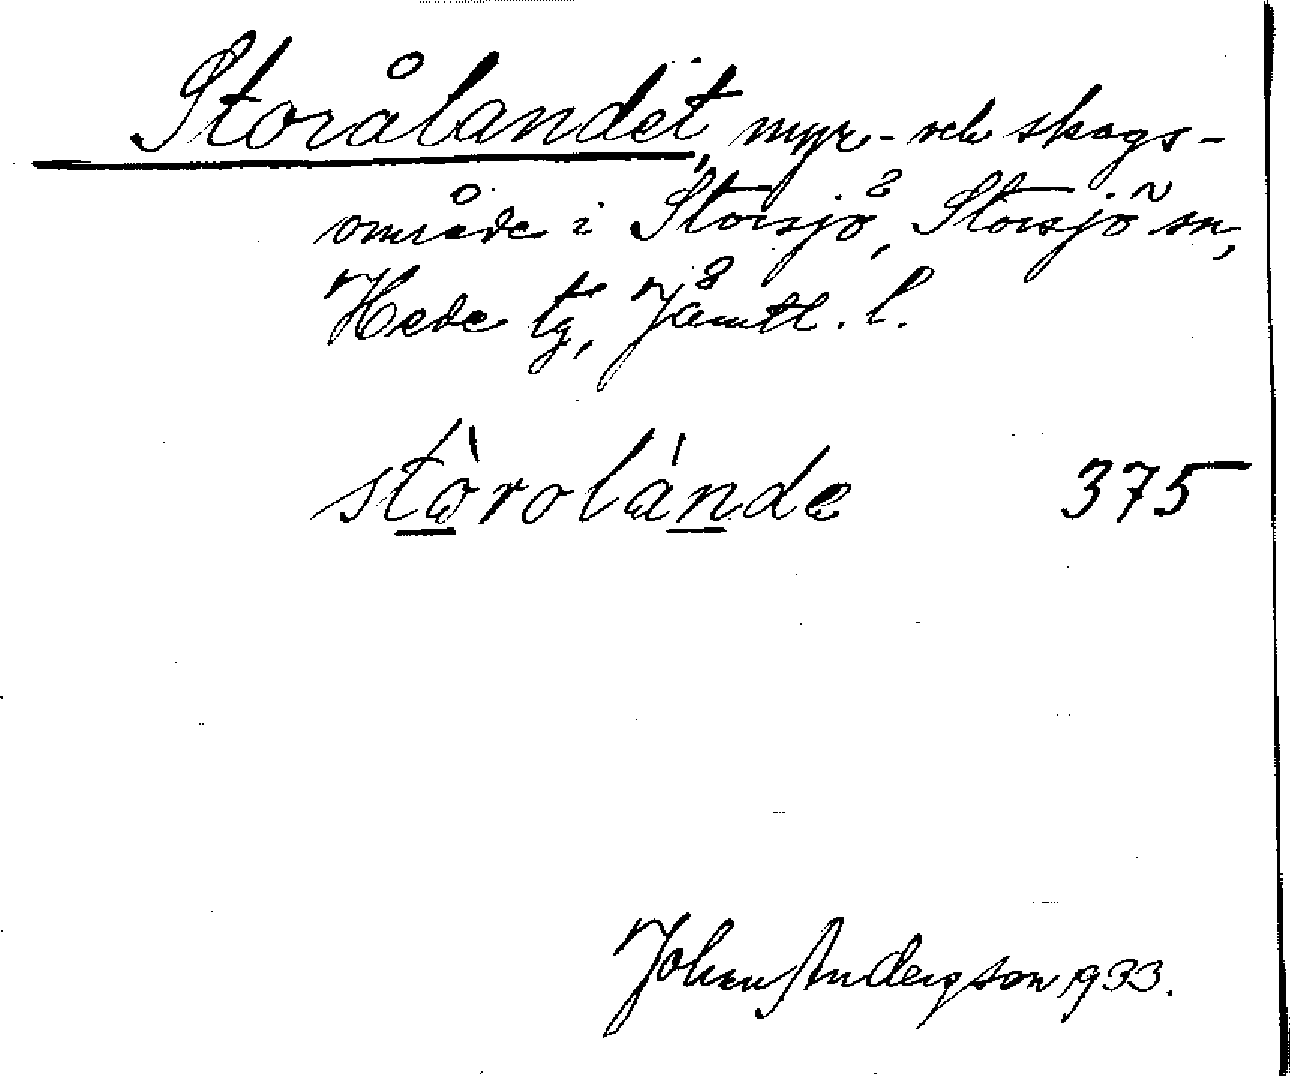 Storålandet, myr- och skogs-
område i Storsjö, Storsjö sn,
Hede tg, Jämtl. l.
stòrolánde 375
Johan Andersson 1933.